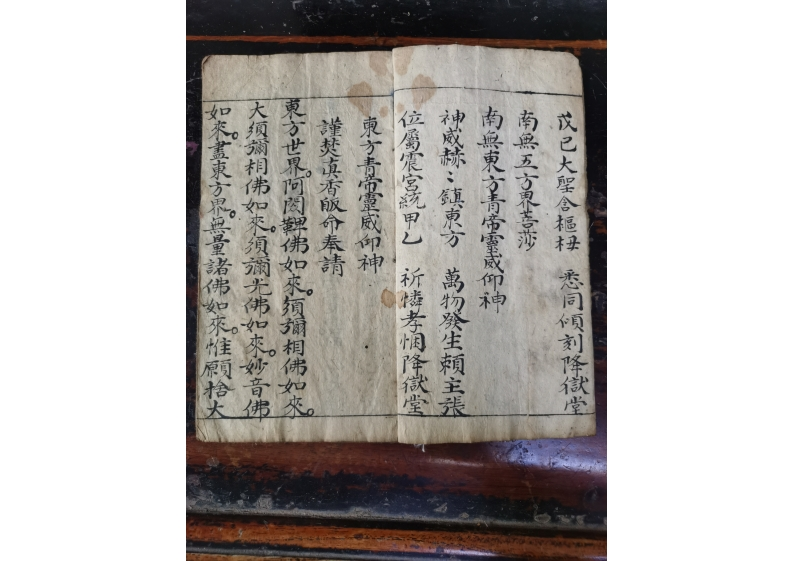 戊己大聖含樞母　悉同傾刻降獄堂
南無五方界菩莎
南無東方青帝靈威仰神
神威赫〻鎮東方　萬物發生頼主張
位屬震宮統甲乙　祈憐孝悃降獄堂
東方青帝靈威仰神
謹焚真香皈命奉請
東方世界。阿閦鞞佛如來。須彌相佛如來。
大須彌相佛如來。須彌光佛如來。妙音佛
如來。盡東方界。無量諸佛如來。惟願捨大